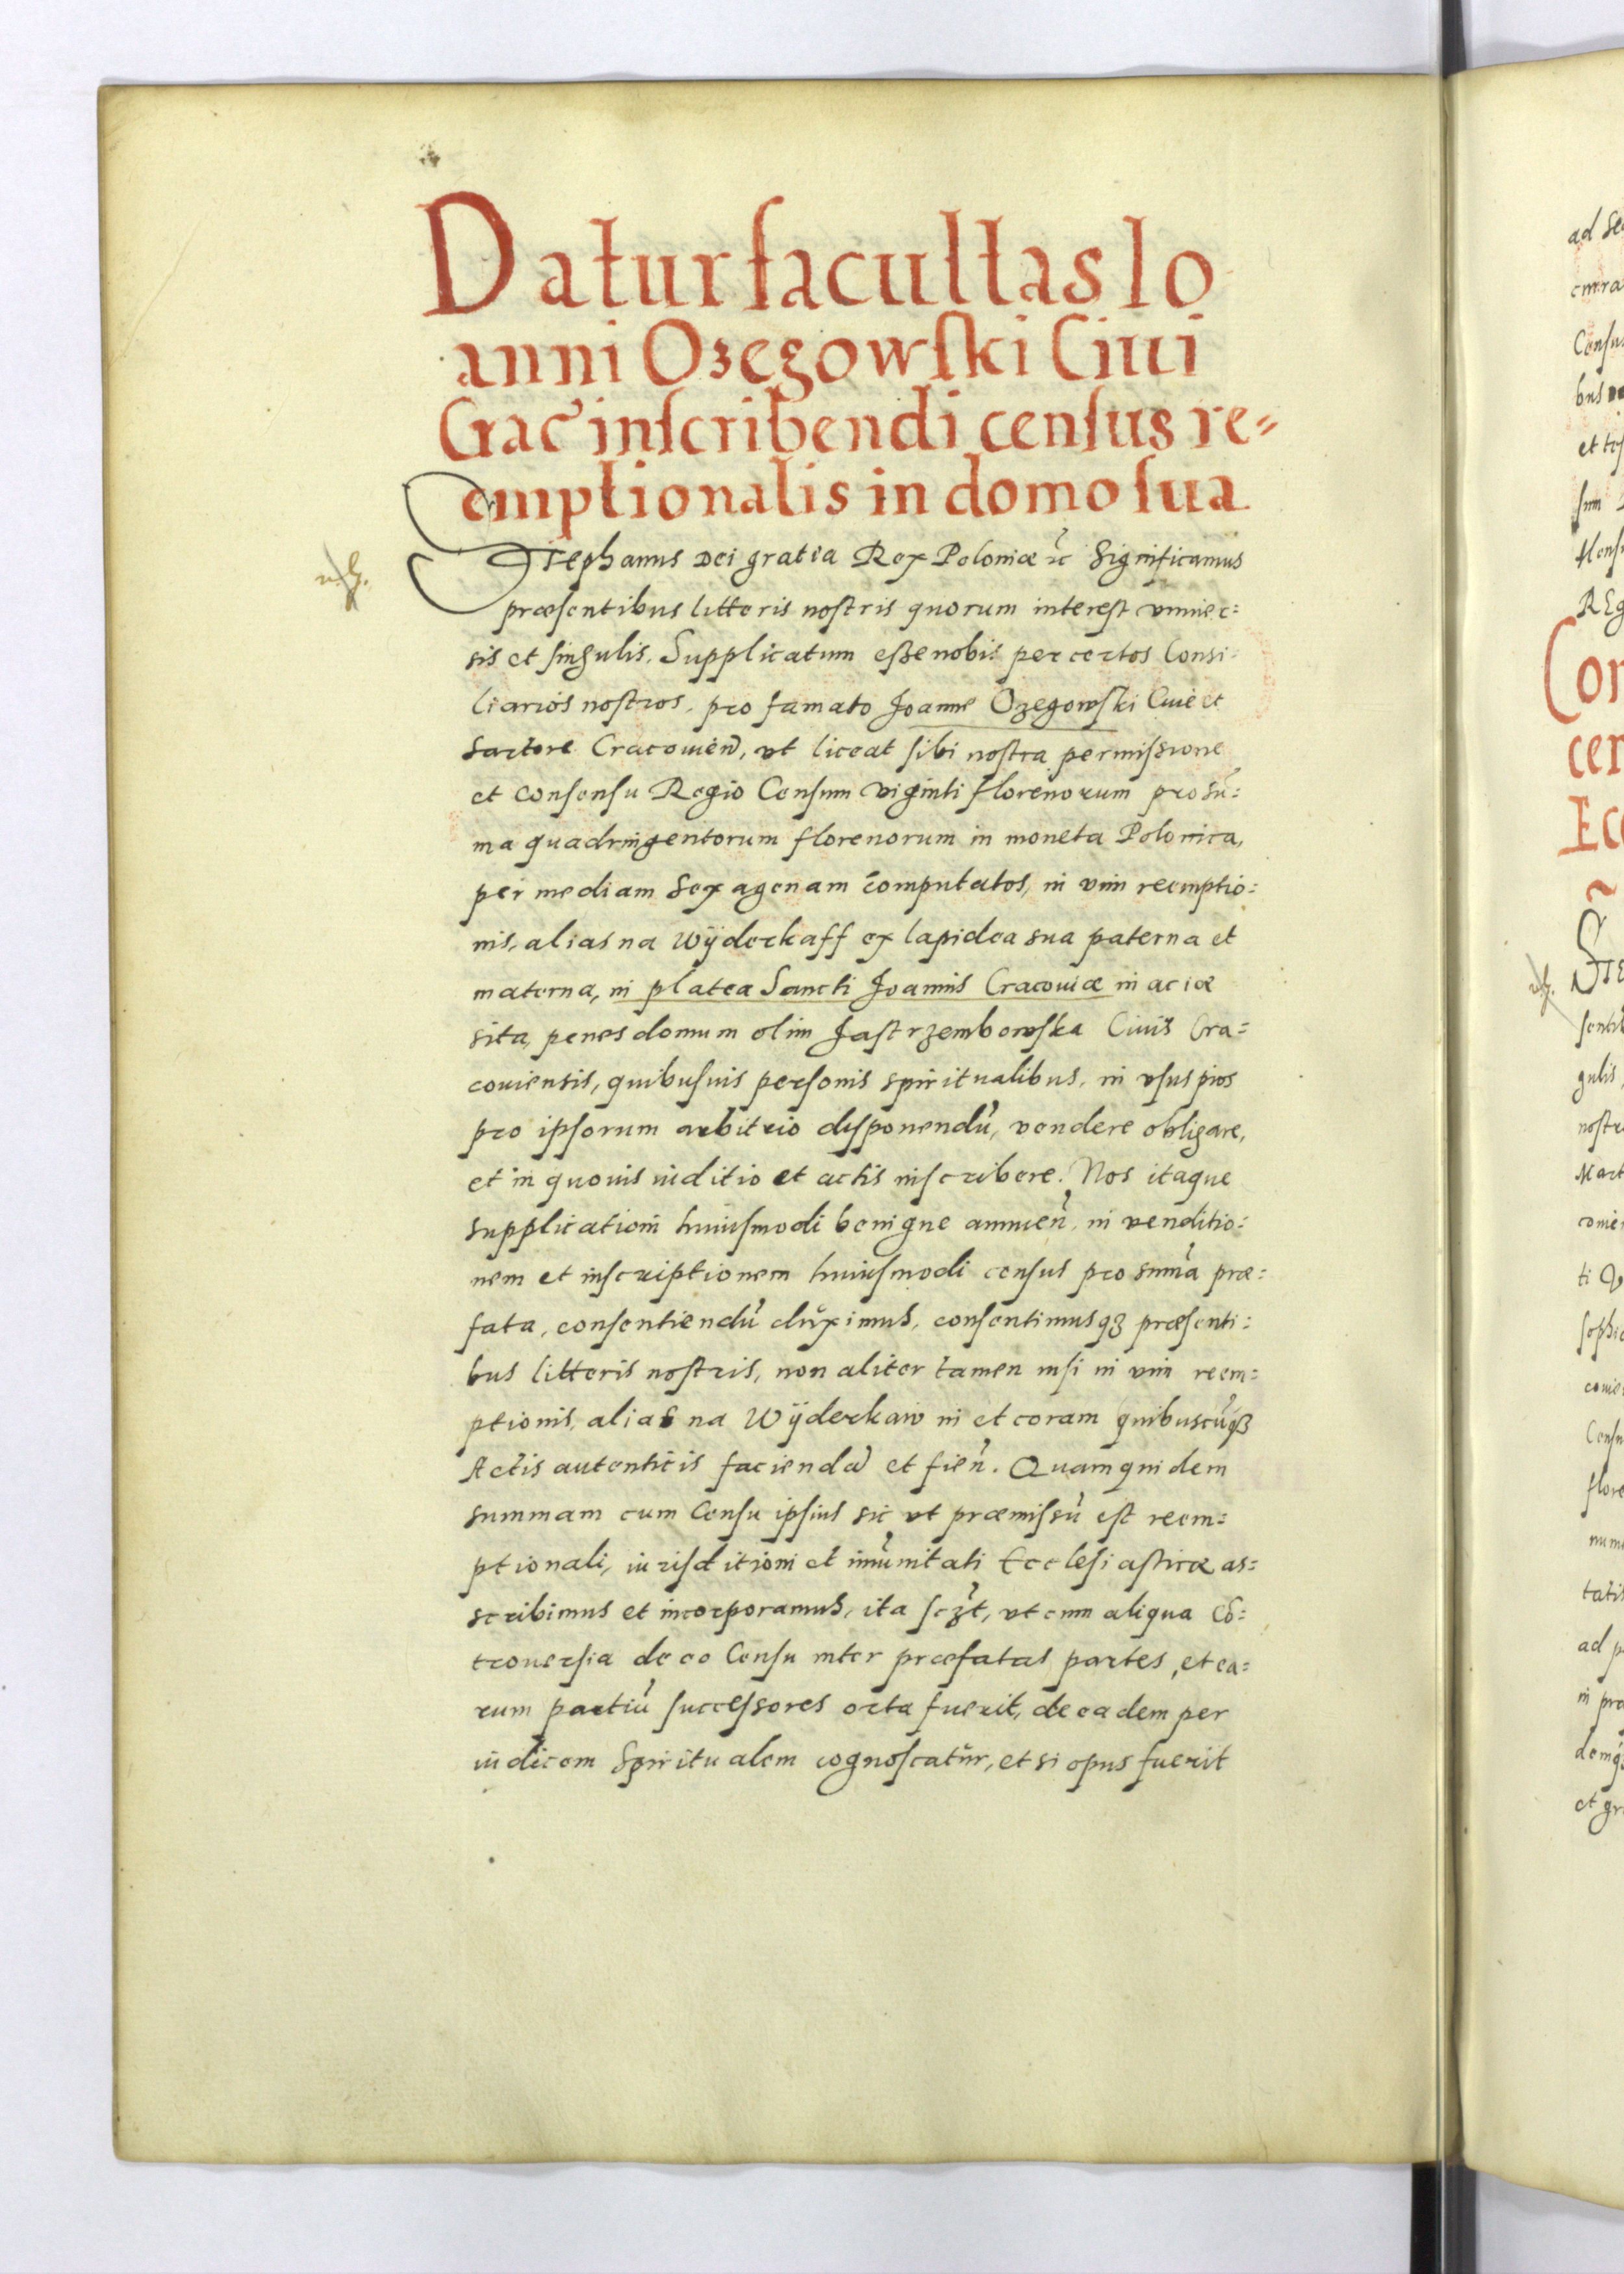 Datur facultas Io
anni Ozegowski Ciui
Crac̃ inscribendi census re=
emptionalis in domo sua
Stephanus Dei gratia Rex Poloniæ ꝛc Significamus
præsentibus litteris nostris quorum interest vniuer=
sis et singulis. Supplicatum esse nobis per certos Consi-
liarios nostros, pro famato Joanne Ozegowski Ciue et
Sartore Cracouien̄, vt liceat sibi nostra permissione
et consensu Regio Censum viginti florenorum pro sũ=
ma quadringentorum florenorum in moneta Polonica,
per mediam sexagenam computatos, in vim reemptio=
nis, alias na Wÿderkaff ex lapidea sua paterna et
materna, in platea Sancti Joannis Cracouiæ in acie
sita, penes domum olim Jastrzembowska Ciuis Cra=
couiensis, quibusuis personis spiritualibus, in vsus pios
pro ipsorum arbitrio disponendũ, vendere obligare,
et in quouis iuditio et actis inscribere. Nos itaque
supplicationi huiusmodi benigne annuen̄, in venditio=
nem et inscriptionem huiusmodi census pro sum̃a præ=
fata, consentiendũ duximus, consentimusqꝫ præsenti=
bus litteris nostris, non aliter tamen nisi in vim reem=
ptionis, alias na Wÿderkaw in et coram quibuscũqꝫ
Actis autenticis faciend̄ et fien̄. Quam quidem
summam cum Censu ipsius sic vt præmissũ est reem=
ptionali, iurisditioni et im̃unitati Ecclesiasticæ as=
scribimus et incorporamus, ita sczt̃, vt cum aliqua cõ=
trouersia de eo Censu inter præfatas partes, et ea=
rum partiũ successores orta fuerit, de eadem per
iudicem Spiritualem cognoscatur, et si opus fuerit